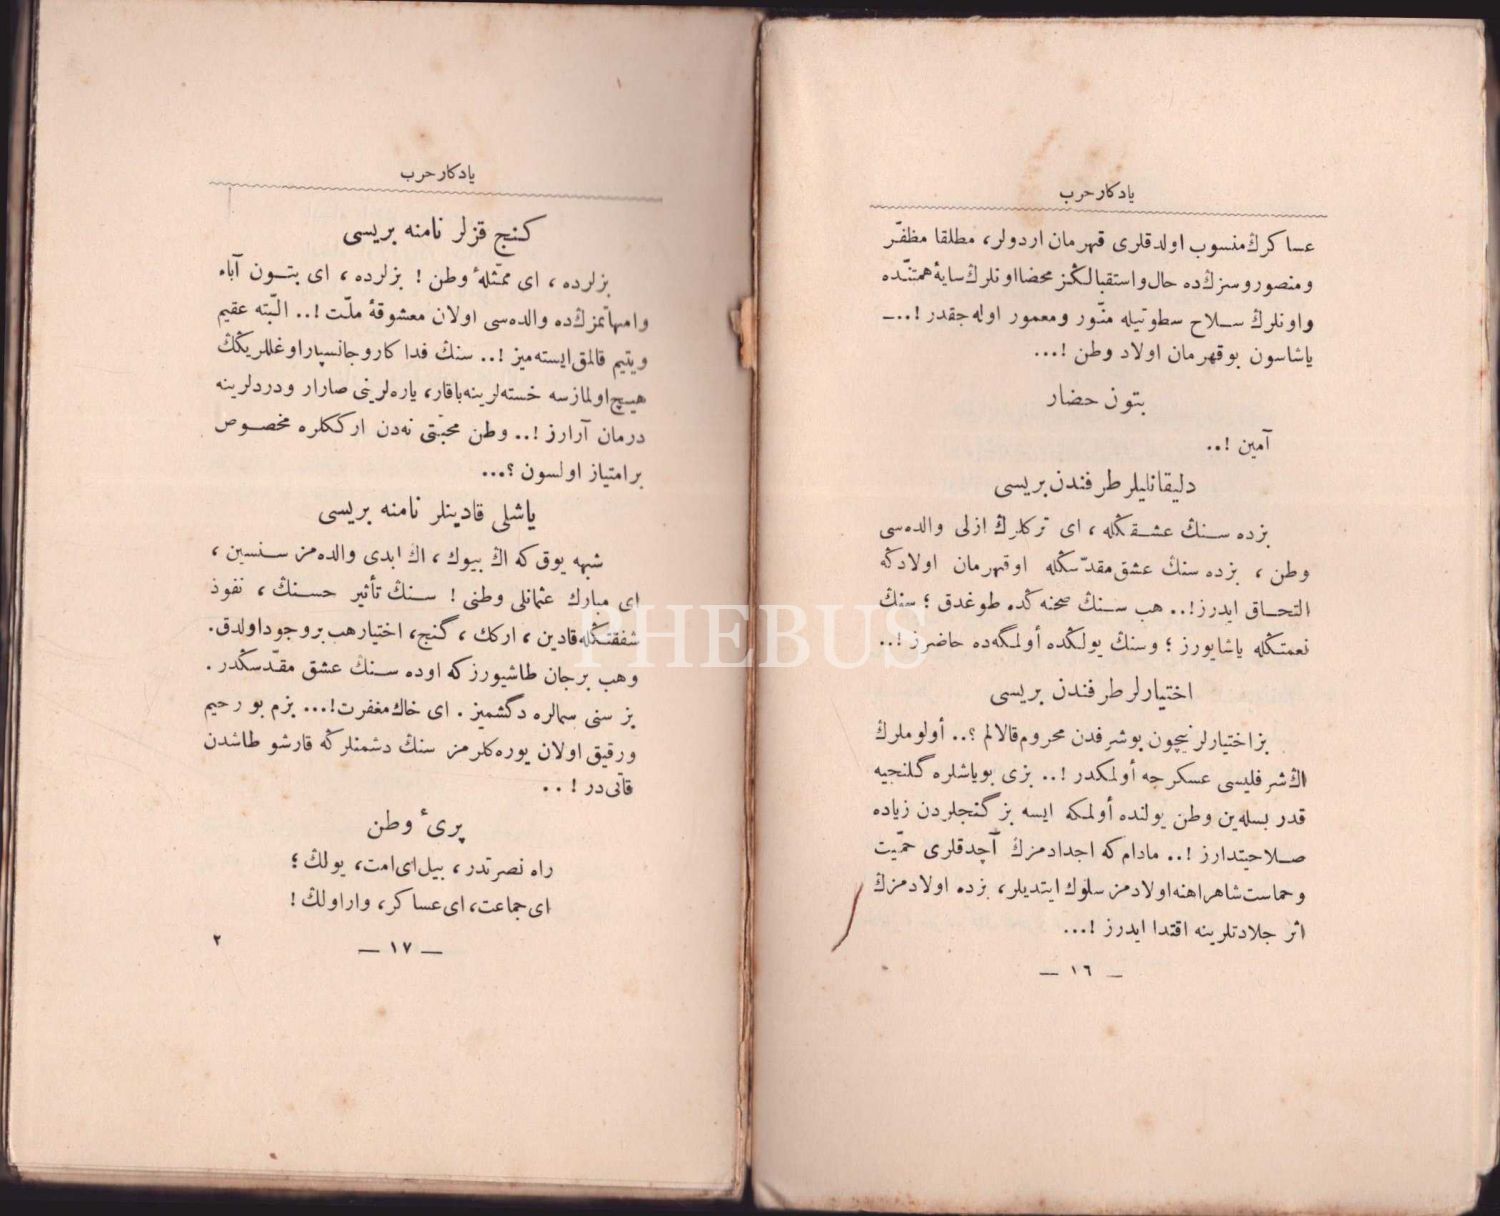 یادکار حرب
عساکرڭ منسوب اولدقلری قهرمان اردولر، مطلقا مظفّر
ومنصور وسزڭ‌ده حال واستقبالڭز محضا اونلرڭ سایهٔ همتنده
واونلرڭ سلاح سطوتیله منّور ومعمور اوله‌جقدر !..ــ
یاشاسون بو قهرمان اولاد وطن !...
بتون حضار
آمین !..
دلیقانلیلر طرفندن بریسی
بزده سنڭ عشقڭله ، ای ترکلرڭ ازلی والده‌سی
وطن ، بزده سنڭ عشق مقدّسڭله اوقهرمان اولادڭه
التحاق ایدرز!.. هب سنڭ صحنه‌ڭده طوغدق ؛ سنڭ
نعمتڭله یاشایورز ؛ وسنڭ یولڭده أولمگه‌ده حاضرز !..
اختیارلر طرفندن بریسی
بز اختیارلر نیچون بوشرفدن محروم قالالم ؟.. أولوملرڭ
اڭ شرفلیسی عسکرجه أولمکدر !.. بزی بویاشلره گلنجیه
قدر بسله‌ین وطن یولنده أولمکه ایسه بز گنجلردن زیاده
صلاحیتدارز !.. مادام که اجدادمزڭ آچدقلری حمّیت
وحماست شاهراهنه اولادمز سلوك ایتدیلر، بزده اولادمزڭ
اثر جلادتلرینه اقتدا ایدرز !...
— ١٦ —
یادکار حرب
کنج قزلر نامنه بریسی
بزلرده ، ای ممثّلهٔ وطن ! بزلرده ، ای بتون آباء
وامهاتمزڭ‌ده والده‌سی اولان معشوقهٔ ملّت !.. البّته عقیم
ویتیم قالمق ایسته‌میز !.. سنڭ فداکار وجانسپار اوغللریڭڭ
هیچ اولمازسه خسته‌لرینه باقار، یاره‌لرینی صارار ودردلرینه
درمان آرارز !.. وطن محبتی نه‌دن ارککلره مخصوص
بر امتیاز اولسون ؟...
یاشلی قادینلر نامنه بریسی
شبهه یوق که اڭ بیوك ، اڭ ابدی والده‌مز سنسین ،
ای مبارك عثمانلی وطنی ! سنڭ تأثیر حسنڭ ، نفوذ
شفقتڭله قادین ، ارکك ، گنج، اختیار هب بر وجود اولدق.
وهب بر جان طاشیورز که اوده سنڭ عشق مقدّسڭدر .
بز سنی سمالره دگشمیز . ای خاك مغفرت!... بزم بو رحیم
ورقیق اولان یوره‌کلرمز سنڭ دشمنلرڭه قارشو طاشدن
قاتی‌در !..
پریٔ وطن
راه نصرتدر ، بیل ای امت، یولڭ ؛
ای جماعت، ای عساکر، وار اولڭ !
— ١٧ —
٢
PHEBUS